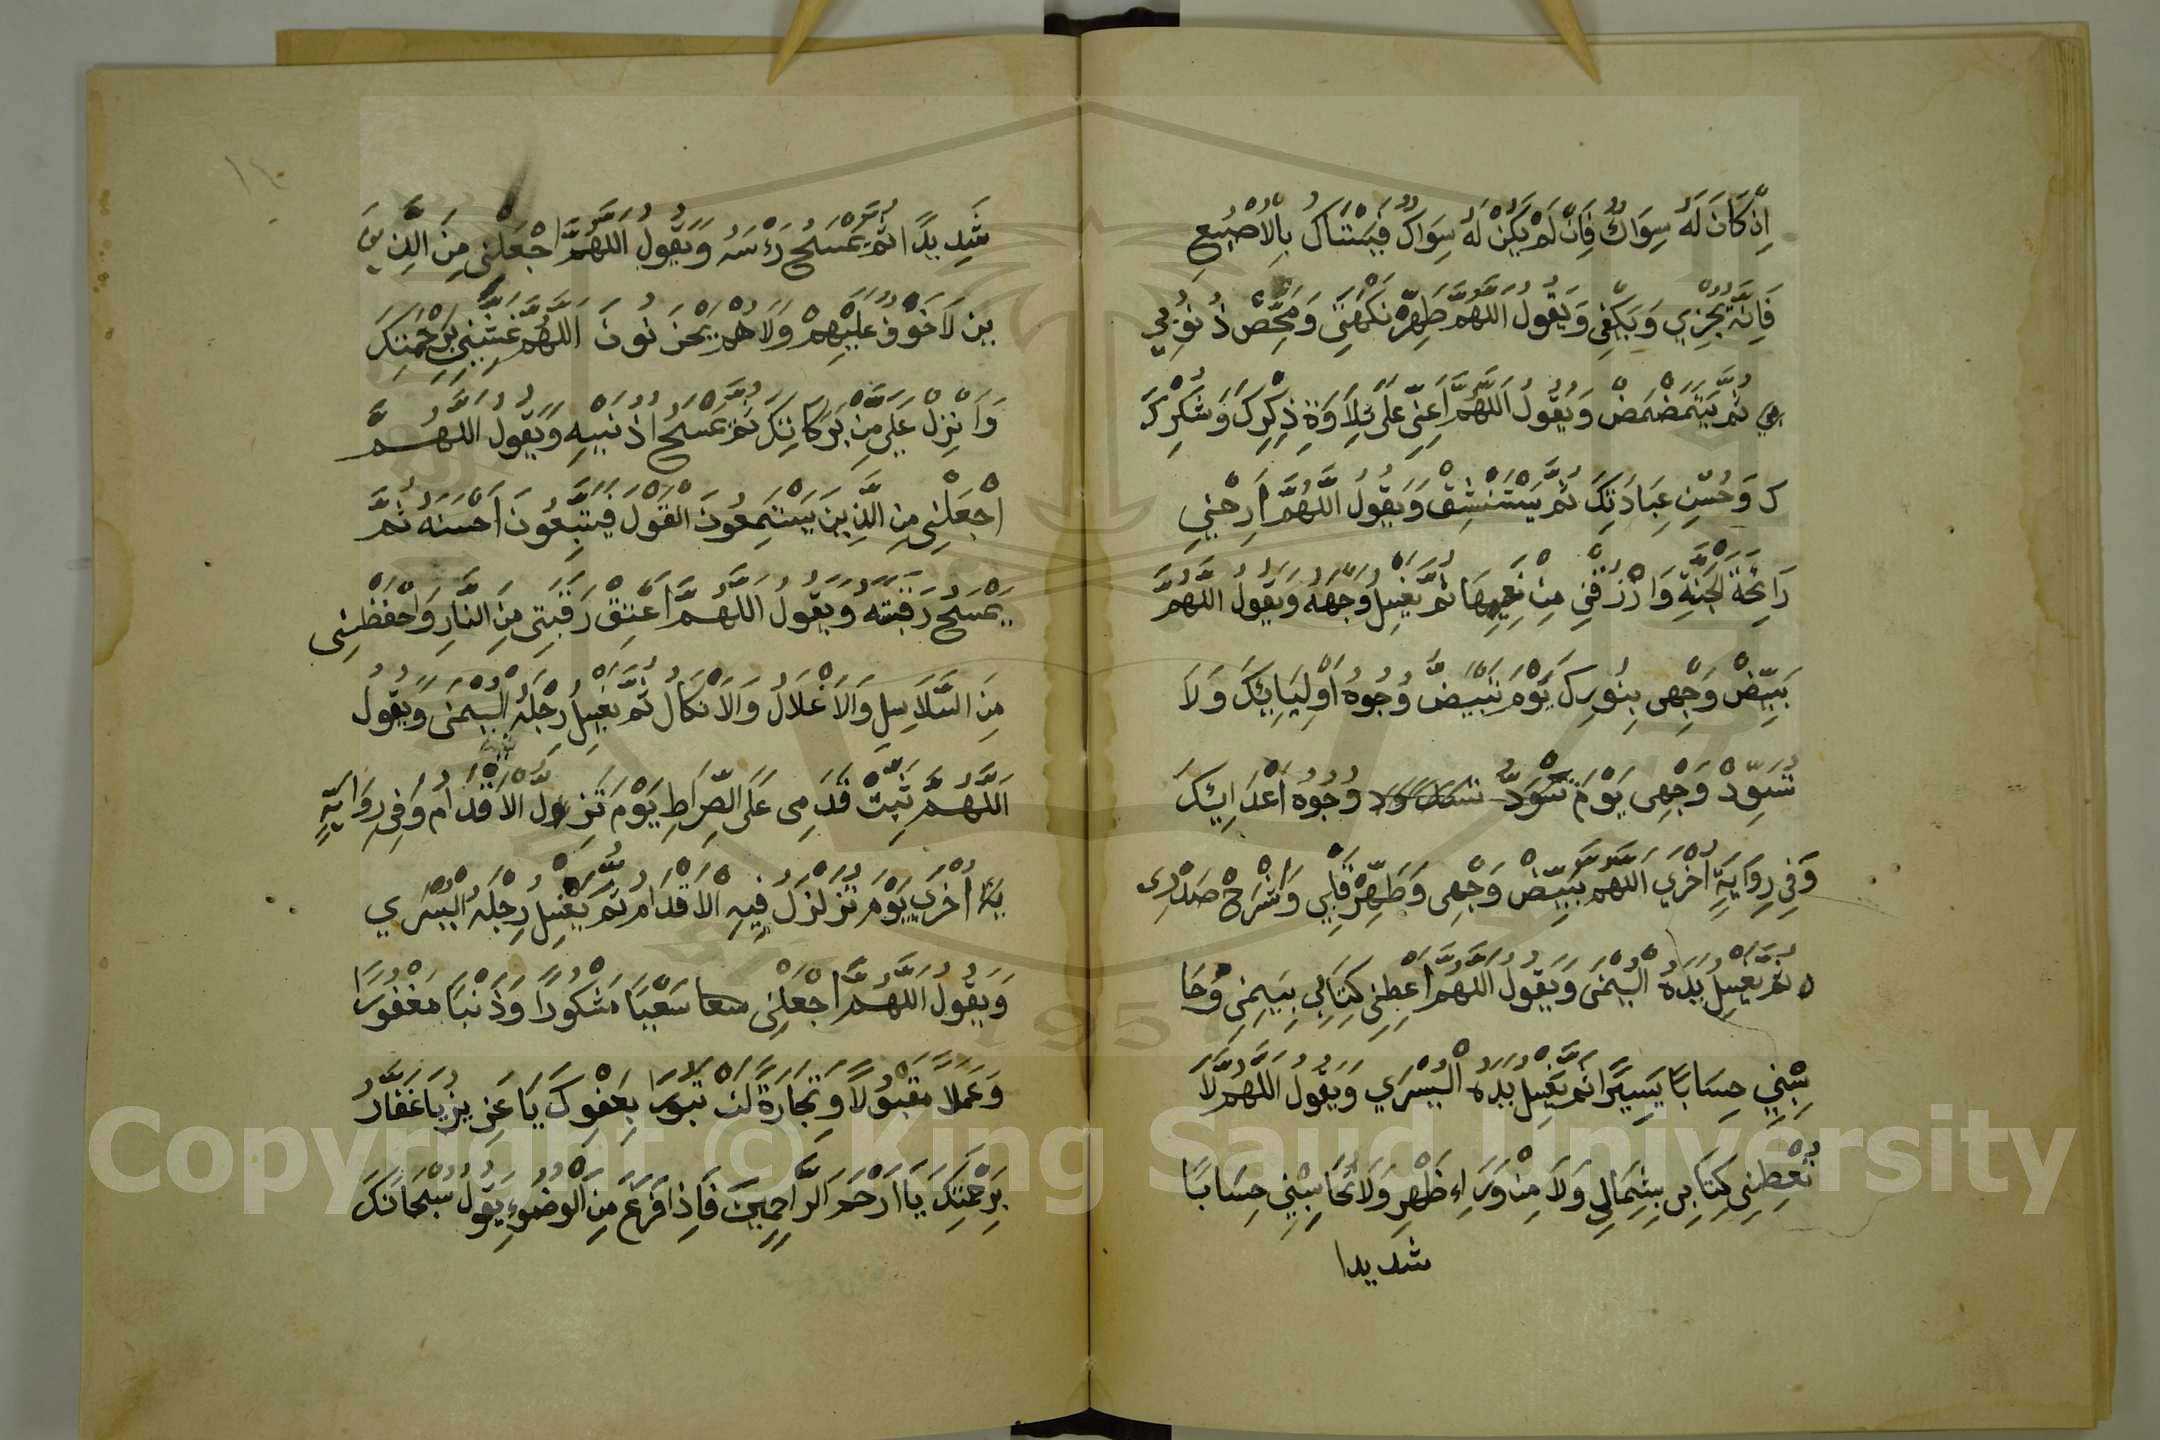 اِنْ كَانَ لَهُ سِوَاكٌ فَاِنْ لَمْ يَكُنْ لَهُ سِوَاكٌ فَيَسْتَاكُ بِالْاُصْبُعِ
فَاِنَّهُ يُجْزِي وَيَكْفِى وَيَقُولُ اللَّهُمَّ طَهِّرْ نَكْهَتِي وَمَحِّصْ ذُنُوْبِي
بِي ثُمَّ يَتَمَضْمَضْ وَيَقُولُ اَللَّهُمَّ اَعِنِّى عَلَى تِلَاوَةِ ذِكْرِكَ وَشُكْرِكَ
كَ وَحُسْنِ عِبَادَتِكَ ثُمَّ يَسْتَنْشِقْ وَيَقُولُ اللَّهُمَّ اَرِحْنِي
رَائِحَةَ الْجَنَّةِ وَارْزُقْنِي مِنْ نَعِيمِهَا ثُمَّ يَغْسِلُ وَجْهَهُ وَيَقُولُ اللَّهُمَّ
بَيِّضْ وَجْهِى بِنُورِكَ يَوْمَ تَبْيَضُّ وُجُوهُ اَوْلِيَايِكَ وَلَا
تُسَوِّدْ وَجْهِى يَوْمَ تَسْوَدُّ وُجُوهُ اَعْدَايِكَ
وَفِي رِوَايَةٍ اُخْرَي اَللَّهُمَّ بَيِّضْ وَجْهِى وَطَهِّرْ قَلْبِي وَاشْرَحْ صَدْرِى
ثُمَّ يَغْسِلُ يَدَهُ الْيُمْنَى وَيَقُولُ اَللَّهُمَّ اَعْطِنِي كِتَابِي بِيَمِينِي وَحَا
سِبْنِي حِسَابًا يَسِيرًا ثُمَّ يَغْسِلُ يَدَهُ الْيُسْرَي وَيَقُولُ اَللَّهُمَّ لَا
تُعْطِنِي كِتَابِى بِشِمَالِي وَلَا مِنْ وَرَاءِ ظَهْرِ وَلَا تُحَاسِبْنِي حِسَابًا
شديدا
شَدِيدًا ثُمَّ يَمْسَحُ رَأْسَهُ وَيَقُولُ اَللَّهُمَّ اجْعَلْنِي مِنَ الَّذِيَن
ين لَا خَوْفٌ عَلَيْهِمْ وَلَا هُمْ يَحْزَنُونَ اَللَّهُمَّ غَشِّنِي بِرَحْمَتِكَ
وَاَنْزِلْ عَلَيَّ مِنْ بَرَكَاتِكَ ثُمَّ يَمْسَحُ اُذُنَيْهِ وَيَقُولُ اللَّهُمَّ
اجْعَلْنِى مِنَ الَّذِينَ يَسْتَمِعُونَ الْقَوْلَ فَيَتَّبِعُونَ اَحْسَنَهُ ثُمَّ
يَمْسَحُ رَقَبَتَهُ وَيَقُولُ اَللَّهُمَّ اَعْتِقْ رَقَبَتِى مِنَ النَّارِ وَاحْفَظْنِى
مِنَ السَّلَاسِلِ وَالَاغْلَالُ وَالَانْكَالُ ثُمَّ يَغْسِلُ رِجْلَهُ الْيُمْنَى وَيَقُولُ
اَللَّهُمَّ ثَبِّتْ قَدَمِى عَلَى الصِّرَاطِ يَوْمَ تَزِلُّ الْاَقْدَامُ وَفِي رِوَايَةٍ
يَةٍ اُخْرَي يَوْمَ تُزَلْزَلُ فِيهِ الْاَقْدَامُ ثُمَّ يَغْسِلُ رِجْلَهُ الْيُسْرَي
وَيَقُولُ اللَّهُمَّ اجْعَلْنِى سَعْيًا مَشْكُورًا وَذَنْبًا مَغْفُورًا
وَعَمَلًا مَقْبُولًا وَتِجَارَةً لَنْ تَبُورَ بِعَفْوِكَ يَا عَزِيزُ يَا غَفَّارُ
بِرَحْمَتِكَ يَا اَرْحَمَ الرَّاحِمِينَ فَاِذَا فَرَغَ مِنَ الْوُضُوءِ يَقُولُ سُبْحَانَكَ
Copyright © King Saud University
1957